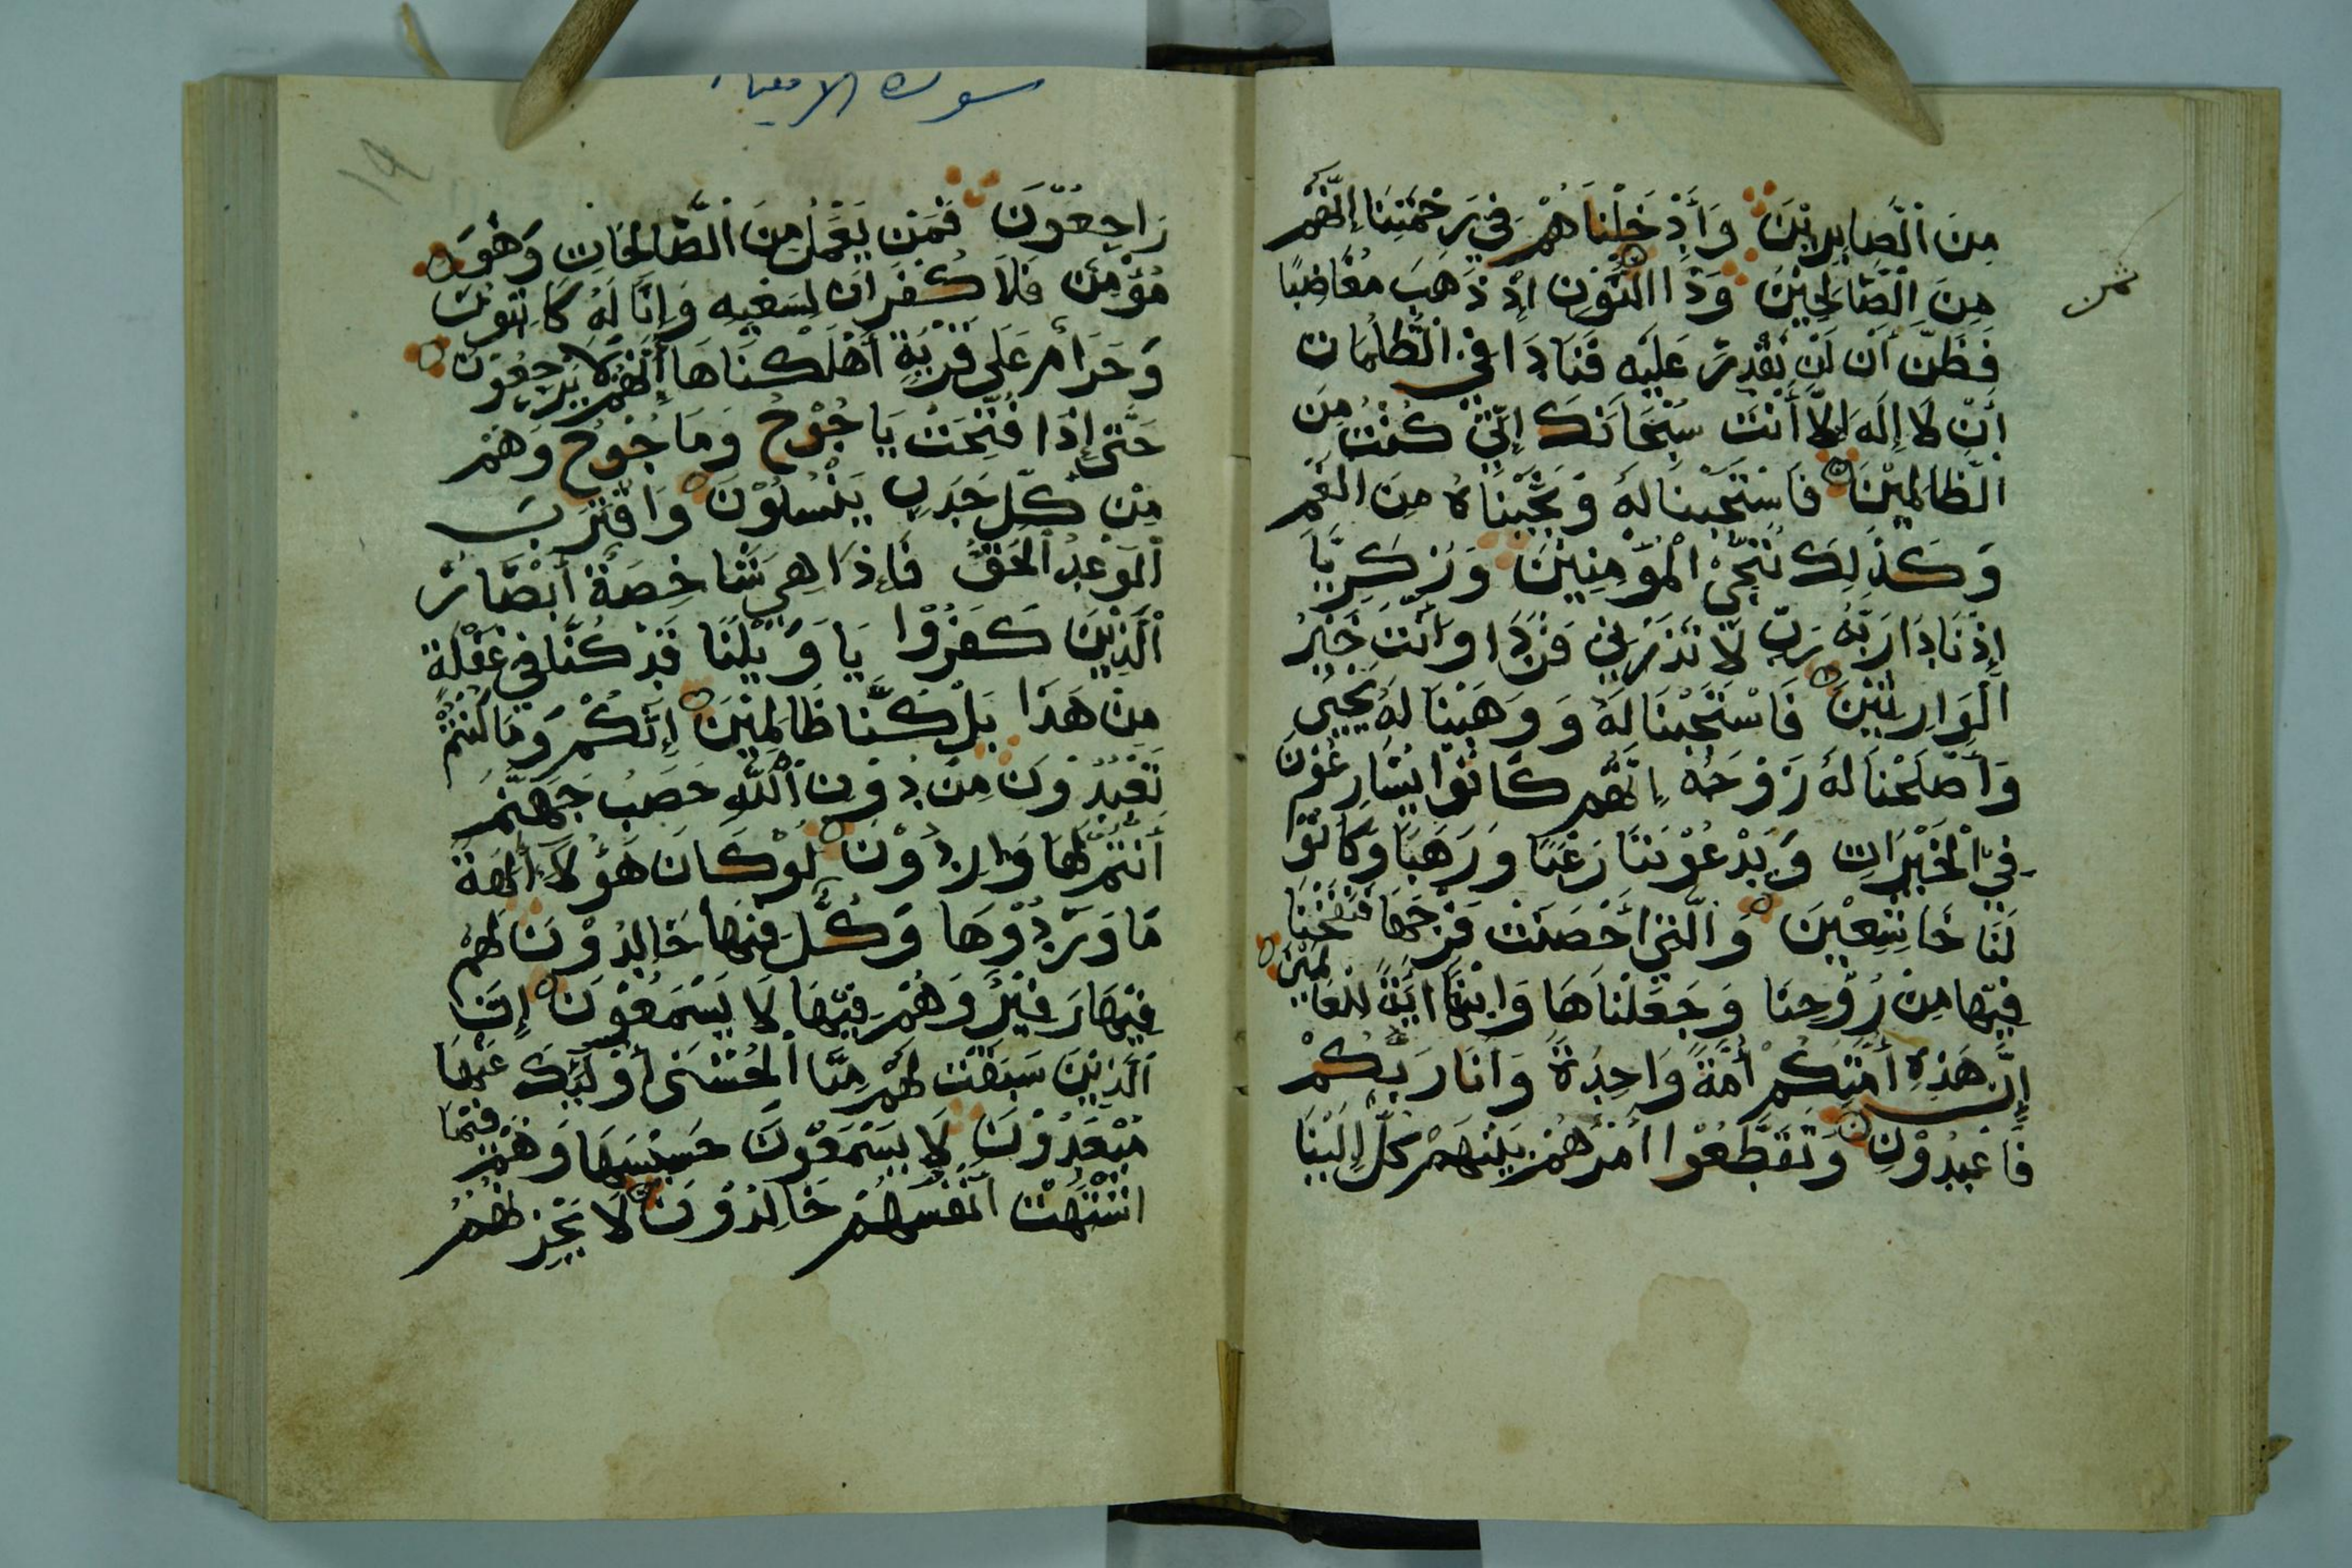 مِنَ الصَّابِرِيْنَ وَأَدْخَلْنَاهُمْ فِي رَحْمَتِنَا إِنَّهُمْ
مِنَ الصَّالِحِيْنَ وَذَا النُّوْنِ إِذْ ذَهَبَ مُغَاضِبًا
ثمن
فَظَنَّ أَنْ لَنْ نَقْدِرَ عَلَيْهِ فَنَادَا فِي الظُّلُمَاتِ
أَنْ لَا إِلَهَ إِلَّا أَنْتَ سُبْحَانَكَ إِنِّي كُنْتُ مِنَ
الظَّالِمِيْنَ فَاسْتَجَبْنَا لَهُ وَنَجَّيْنَاهُ مِنَ الْغَمِّ
وَكَذَلِكَ نُنْجِي الْمُؤْمِنِيْنَ وَزَكَرِيَّا
إِذْ نَادَا رَبَّهُ رَبِّ لَا تَذَرْنِي فَرْدًا وَأَنْتَ خَيْرُ
الْوَارِثِيْنَ فَاسْتَجَبْنَا لَهُ وَوَهَبْنَا لَهُ يَحْيَى
وَأَصْلَحْنَا لَهُ زَوْجَهُ إِنَّهُمْ كَانُوْا يُسَارِعُوْنَ
فِي الْخَيْرَاتِ وَيَدْعُوْنَنَا رَغَبًا وَرَهَبًا وَكَانُوْا
لَنَا خَاشِعِيْنَ وَالَّتِي أَحْصَنَتْ فَرْجَهَا فَنَفَخْنَا
فِيْهَا مِنْ رُوْحِنَا وَجَعَلْنَاهَا وَابْنَهَا اَيَةً لِلْعَالَمِيْنَ
إِنَّ هَذِهِ أُمَّتُكُمْ أُمَّةً وَاحِدَةً وَأَنَا رَبُّكُمْ
فَاعْبُدُوْنِ وَتَقَطَّعُوْا أَمْرَهُمْ بَيْنَهُمْ كُلٌّ إِلَيْنَا
سورة الانبياء
رَاجِعُوْنَ فَمَنْ يَعْمَلْ مِنَ الصَّالِحَاتِ وَهُوَ
مُؤْمِنٌ فَلَا كُفْرَانَ لِسَعْيِهِ وَإِنَّا لَهُ كَاتِبُوْنَ
وَحَرَامٌ عَلَى قَرْيَةٍ أَهْلَكْنَاهَا أَنَّهُمْ لَا يَرْجِعُوْنَ
حَتَّى إِذَا فُتِحَتْ يَاجُوْجُ وَمَاجُوْجُ وَهُمْ
مِنْ كُلِّ حَدَبٍ يَنْسِلُوْنَ وَاقْتَرَبَ
الْوَعْدُ الْحَقُّ فَإِذَا هِيَ شَاخِصَةٌ أَبْصَارُ
الَّذِيْنَ كَفَرُوْا يَا وَيْلَنَا قَدْ كُنَّا فِي غَفْلَةٍ
مِنْ هَذَا بَلْ كُنَّا ظَالِمِيْنَ إِنَّكُمْ وَمَا كُنْتُمْ
تَعْبُدُوْنَ مِنْ دُوْنِ اللَّهِ حَصَبُ جَهَنَّمَ
أَنْتُمْ لَهَا وَارِدُوْنَ لَوْ كَانَ هَؤُلَاءِ أَلِهَةً
مَا وَرَدُوْهَا وَكُلٌّ فِيْهَا خَالِدُوْنَ لَهُمْ
فِيْهَا زَفِيْرٌ وَهُمْ فِيْهَا لَا يَسْمَعُوْنَ إِنَّ
الَّذِيْنَ سَبَقَتْ لَهُمْ مِنَّا الْحُسْنَى أُوْلَئِكَ عَنْهَا
مُبْعَدُوْنَ لَا يَسْمَعُوْنَ حَسِيْسَهَا وَهُمْ فِيْمَا
اشْتَهَتْ أَنْفُسُهُمْ خَالِدُوْنَ لَا يَحْزُنُهُمُ